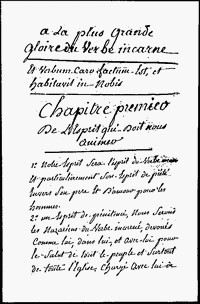 a La plus Grande
gloire du Verbe incarne
Et Verbum Caro factum Est, et
habitavit in Nobis
Chapitre premier
De L'Esprit qui doit nous
animer
1º Notre Esprit Sera l'esprit du Verbe
et particulierement Son Esprit de piété
Envers Son pere et D'amour pour les
hommes.
2º un Esprit de Nous Serons
les du Verbe incarné, devoués
Comme lui, dans lui, et avec lui pour
le Salut de tout le peuple et Surtout
de toute l'Eglise, Chargé avec lui de